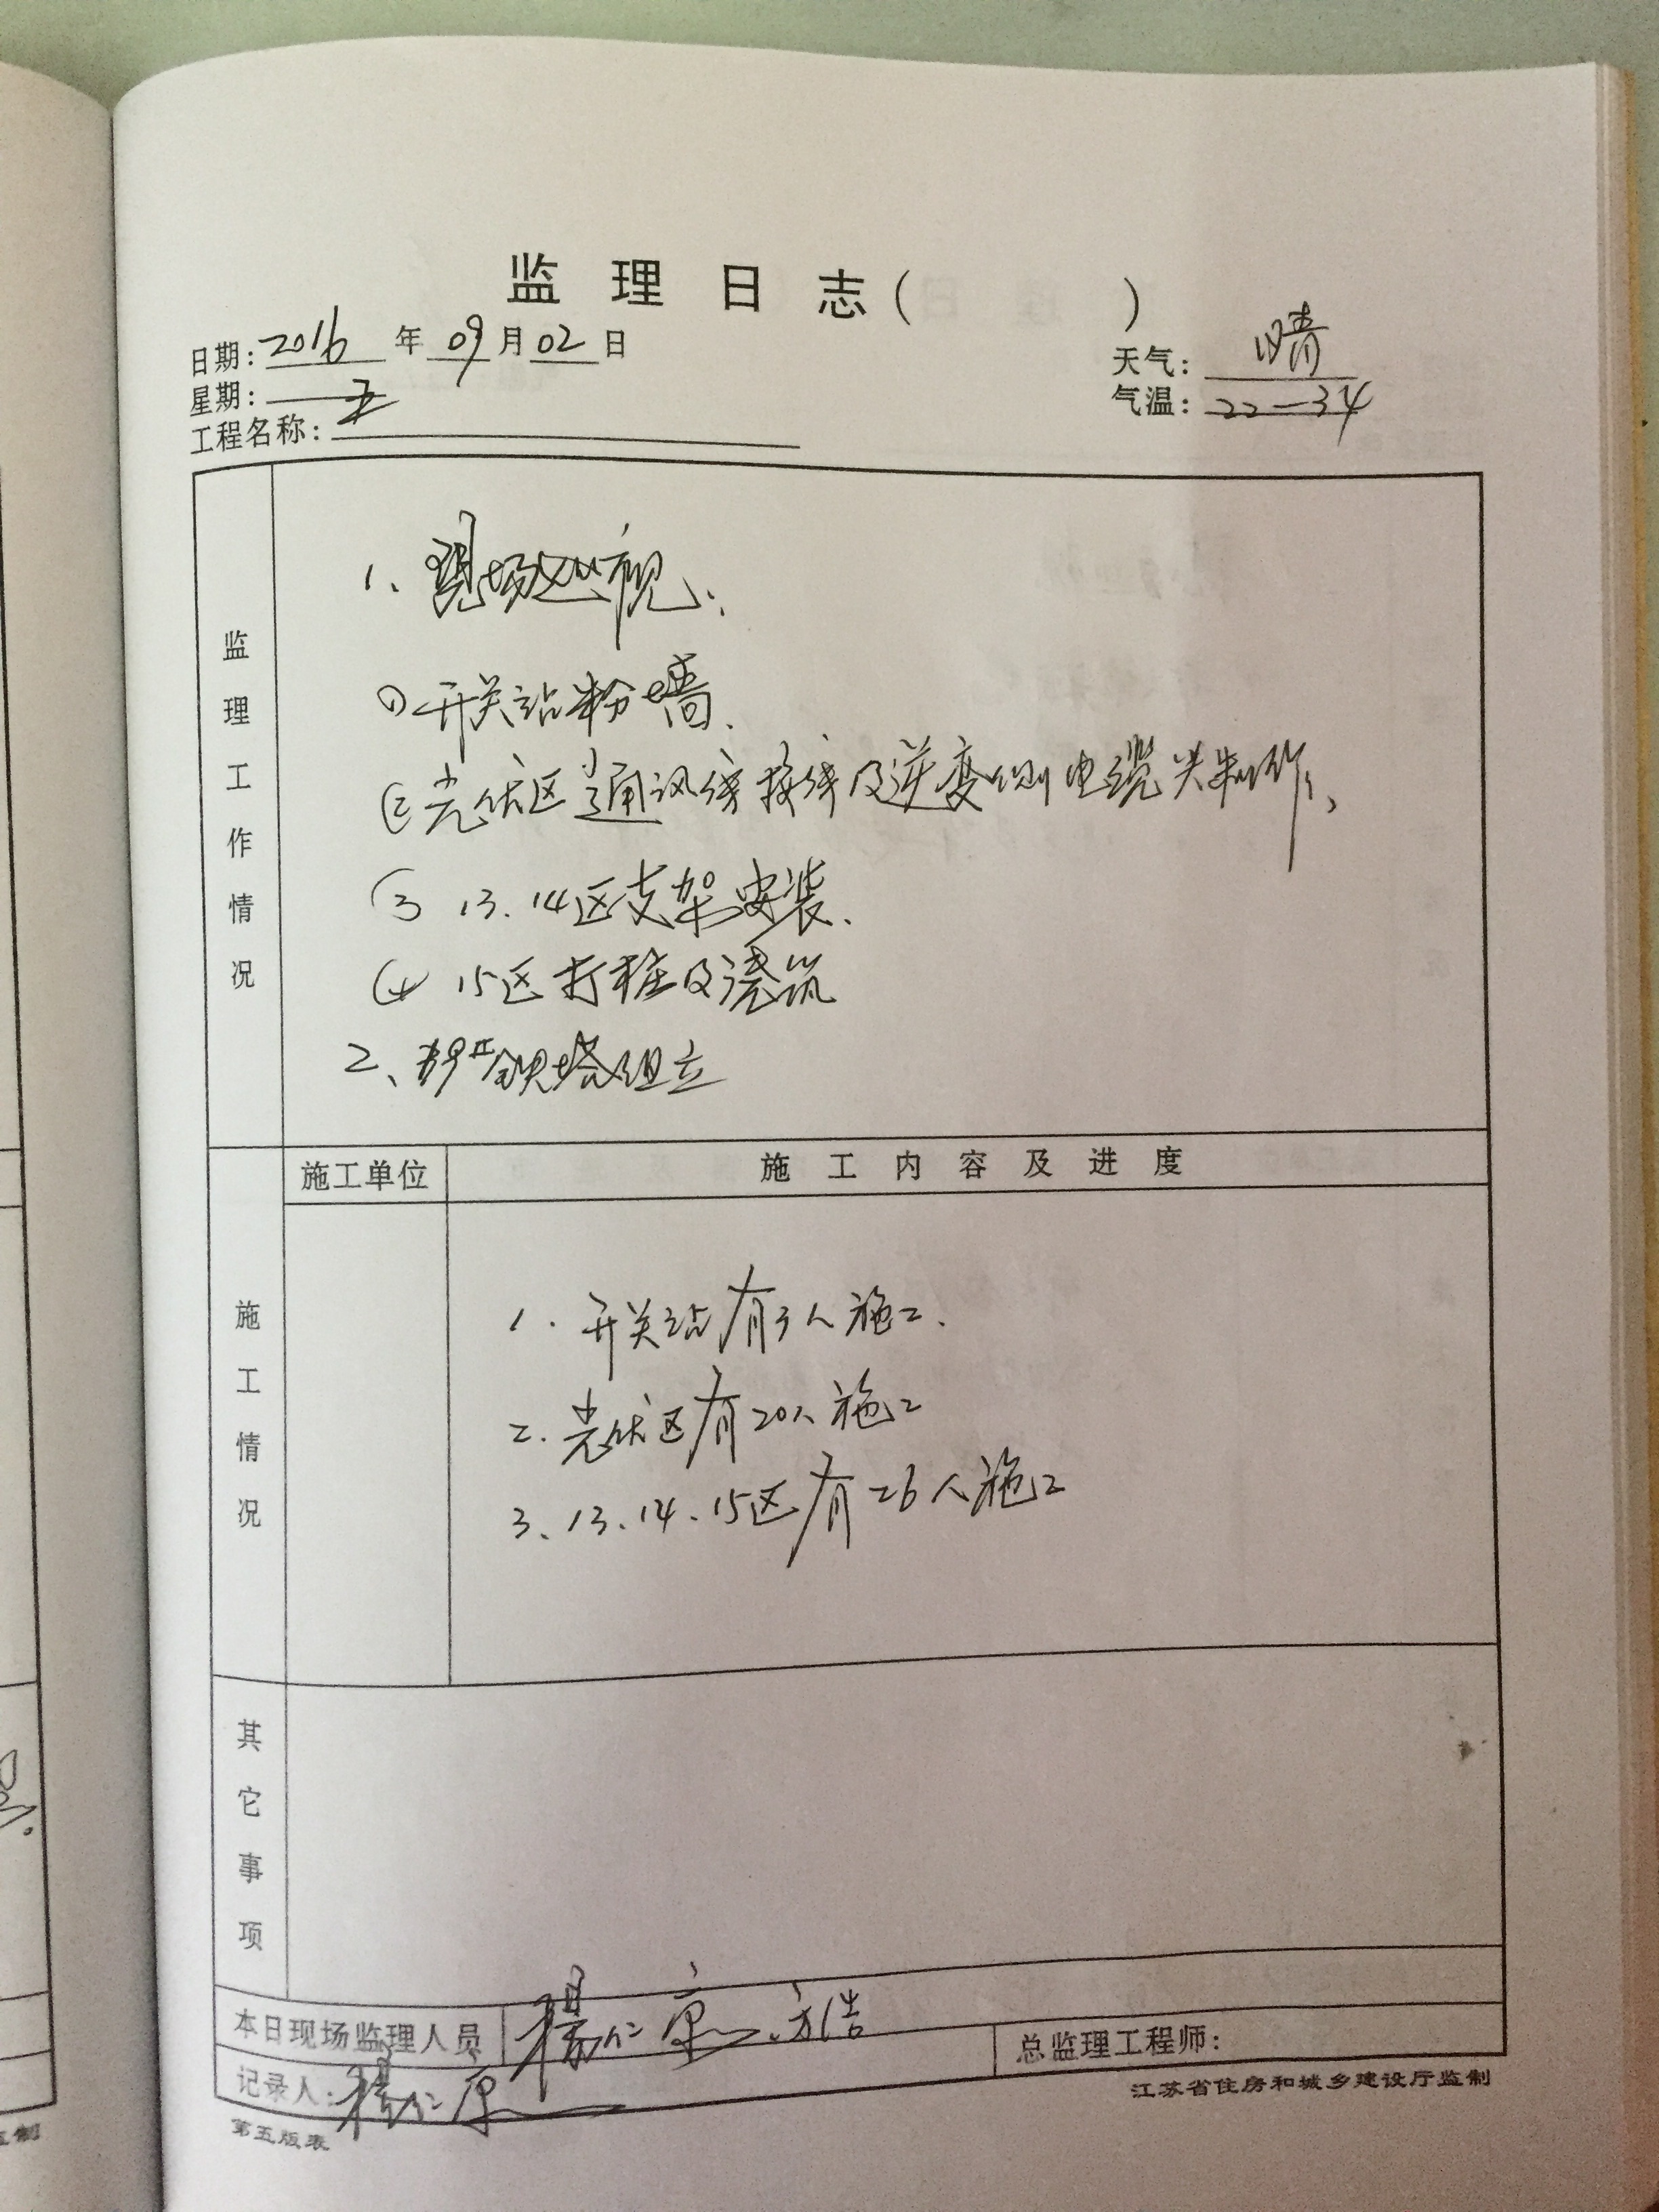 监理日志（ ）
日期：2016年09月02日
天气：晴
星期：五
气温：22—34
工程名称：
监理工作情况
1、现场巡视、
①开关站粉墙、
②光伏区通讯线接线及逆变侧电缆头制作、
③ 13、14区支架安装、
④ 15区打桩及浇筑
2、铁塔组立
施工单位
施工内容及进度
施工情况
1、开关站有3人施工、
2、光伏区有20人施工
3、13、14、15区有26人施工
其它事项
本日现场监理人员
总监理工程师：
记录人：
江苏省住房和城乡建设厅监制
第五版表
监制